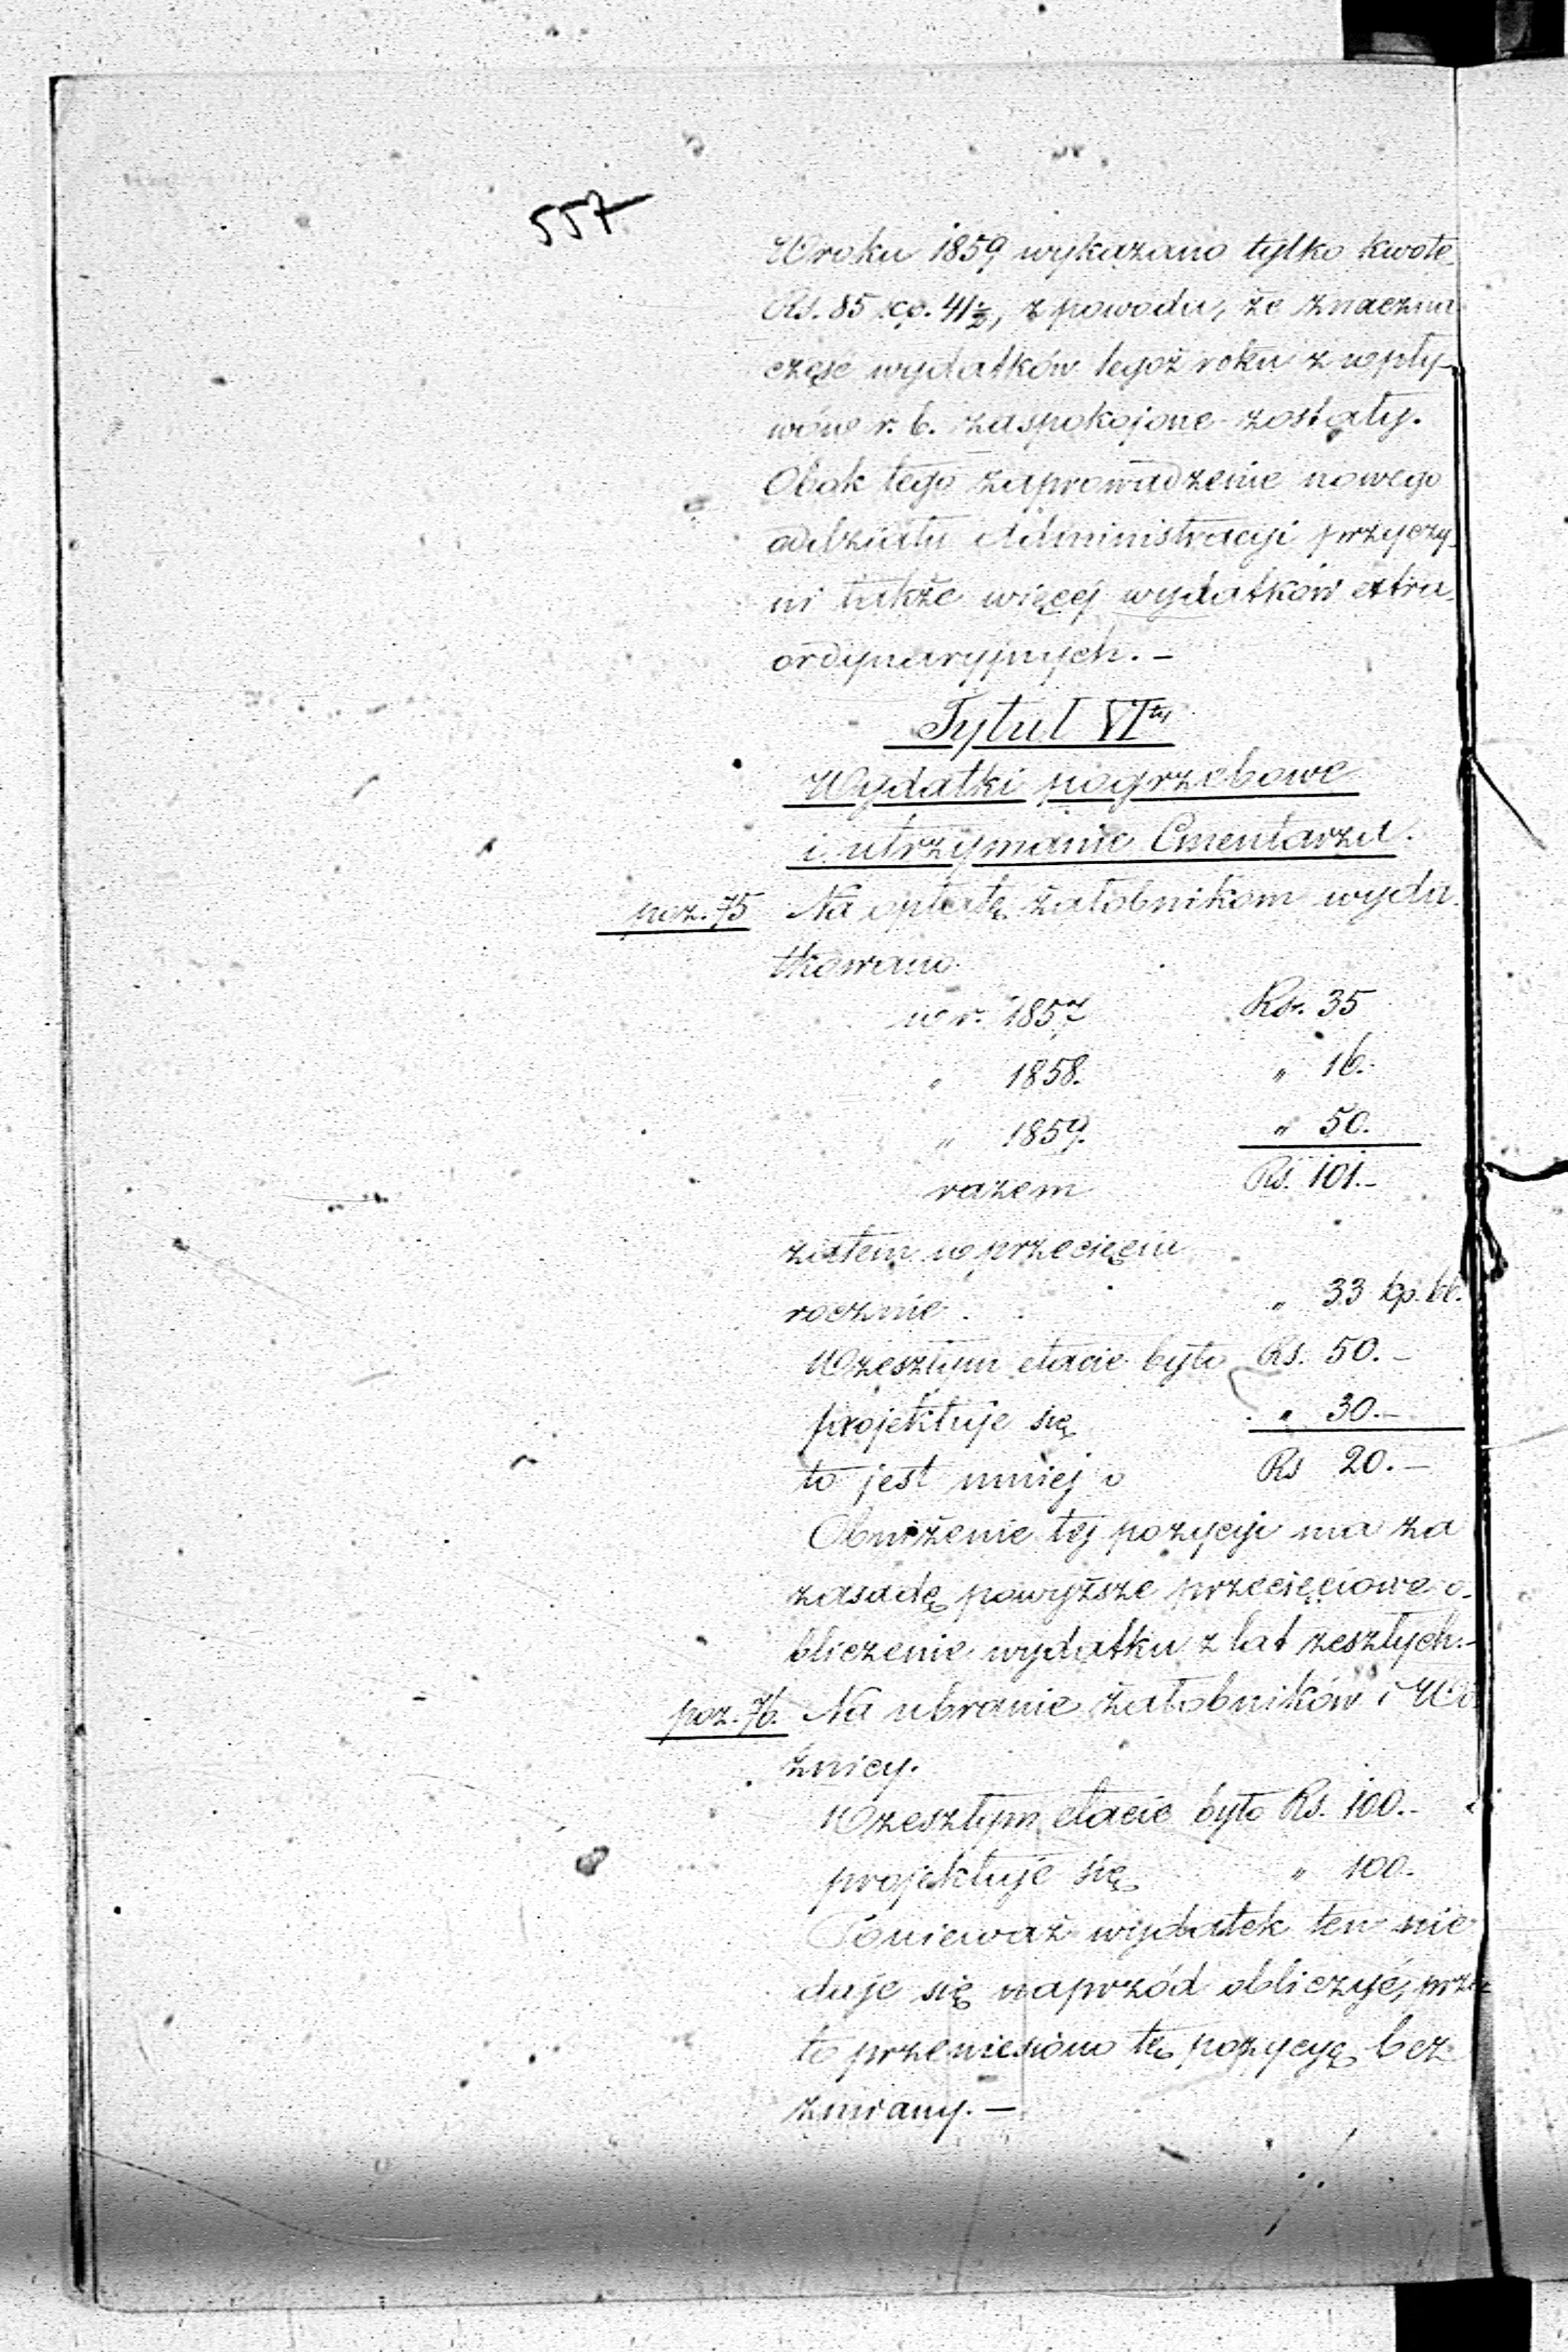 557
W roku 1859 wykazano tylko kwotę
Rs. 85 cp. 41½, z powodu, że znaczna
część wydatków tegoż roku z wpły-
wów r. b. zaspokojone zostały.
Obok tego zaprowadzenie nowego
oddziału Administracyi przyczy-
ni także więcej wydatków extra-
ordynaryjnych. –
Tytuł VIty
Wydatki pogrzebowe
i utrzymanie Cmentarza.
poz. 75 Na opłatę żałobnikom wyda-
tkowano
w r. 1857 Rs. 35
" 1858. " 16.-
" 1859. " 50.
razem Rs. 101.-
zatem w przecięciu
rocznie . . " 33 kp. 66.
W zeszłym etacie było Rs. 50. –
projektuje się . " 30. –
to jest mniej o Rs 20. –
Obniżenie tej pozycyi ma za
zasadę powyższe przecięciowe o-
bliczenie wydatku z lat zeszłych. –
poz. 76. Na ubranie żałobników i Wo
źnicy.
W zeszłym etacie było Rs. 100. -
projektuje się " 100.
Ponieważ wydatek ten nie
daje się naprzód obliczyć, prze-
to przeniesiono tę pozycyę bez
zmiany. –